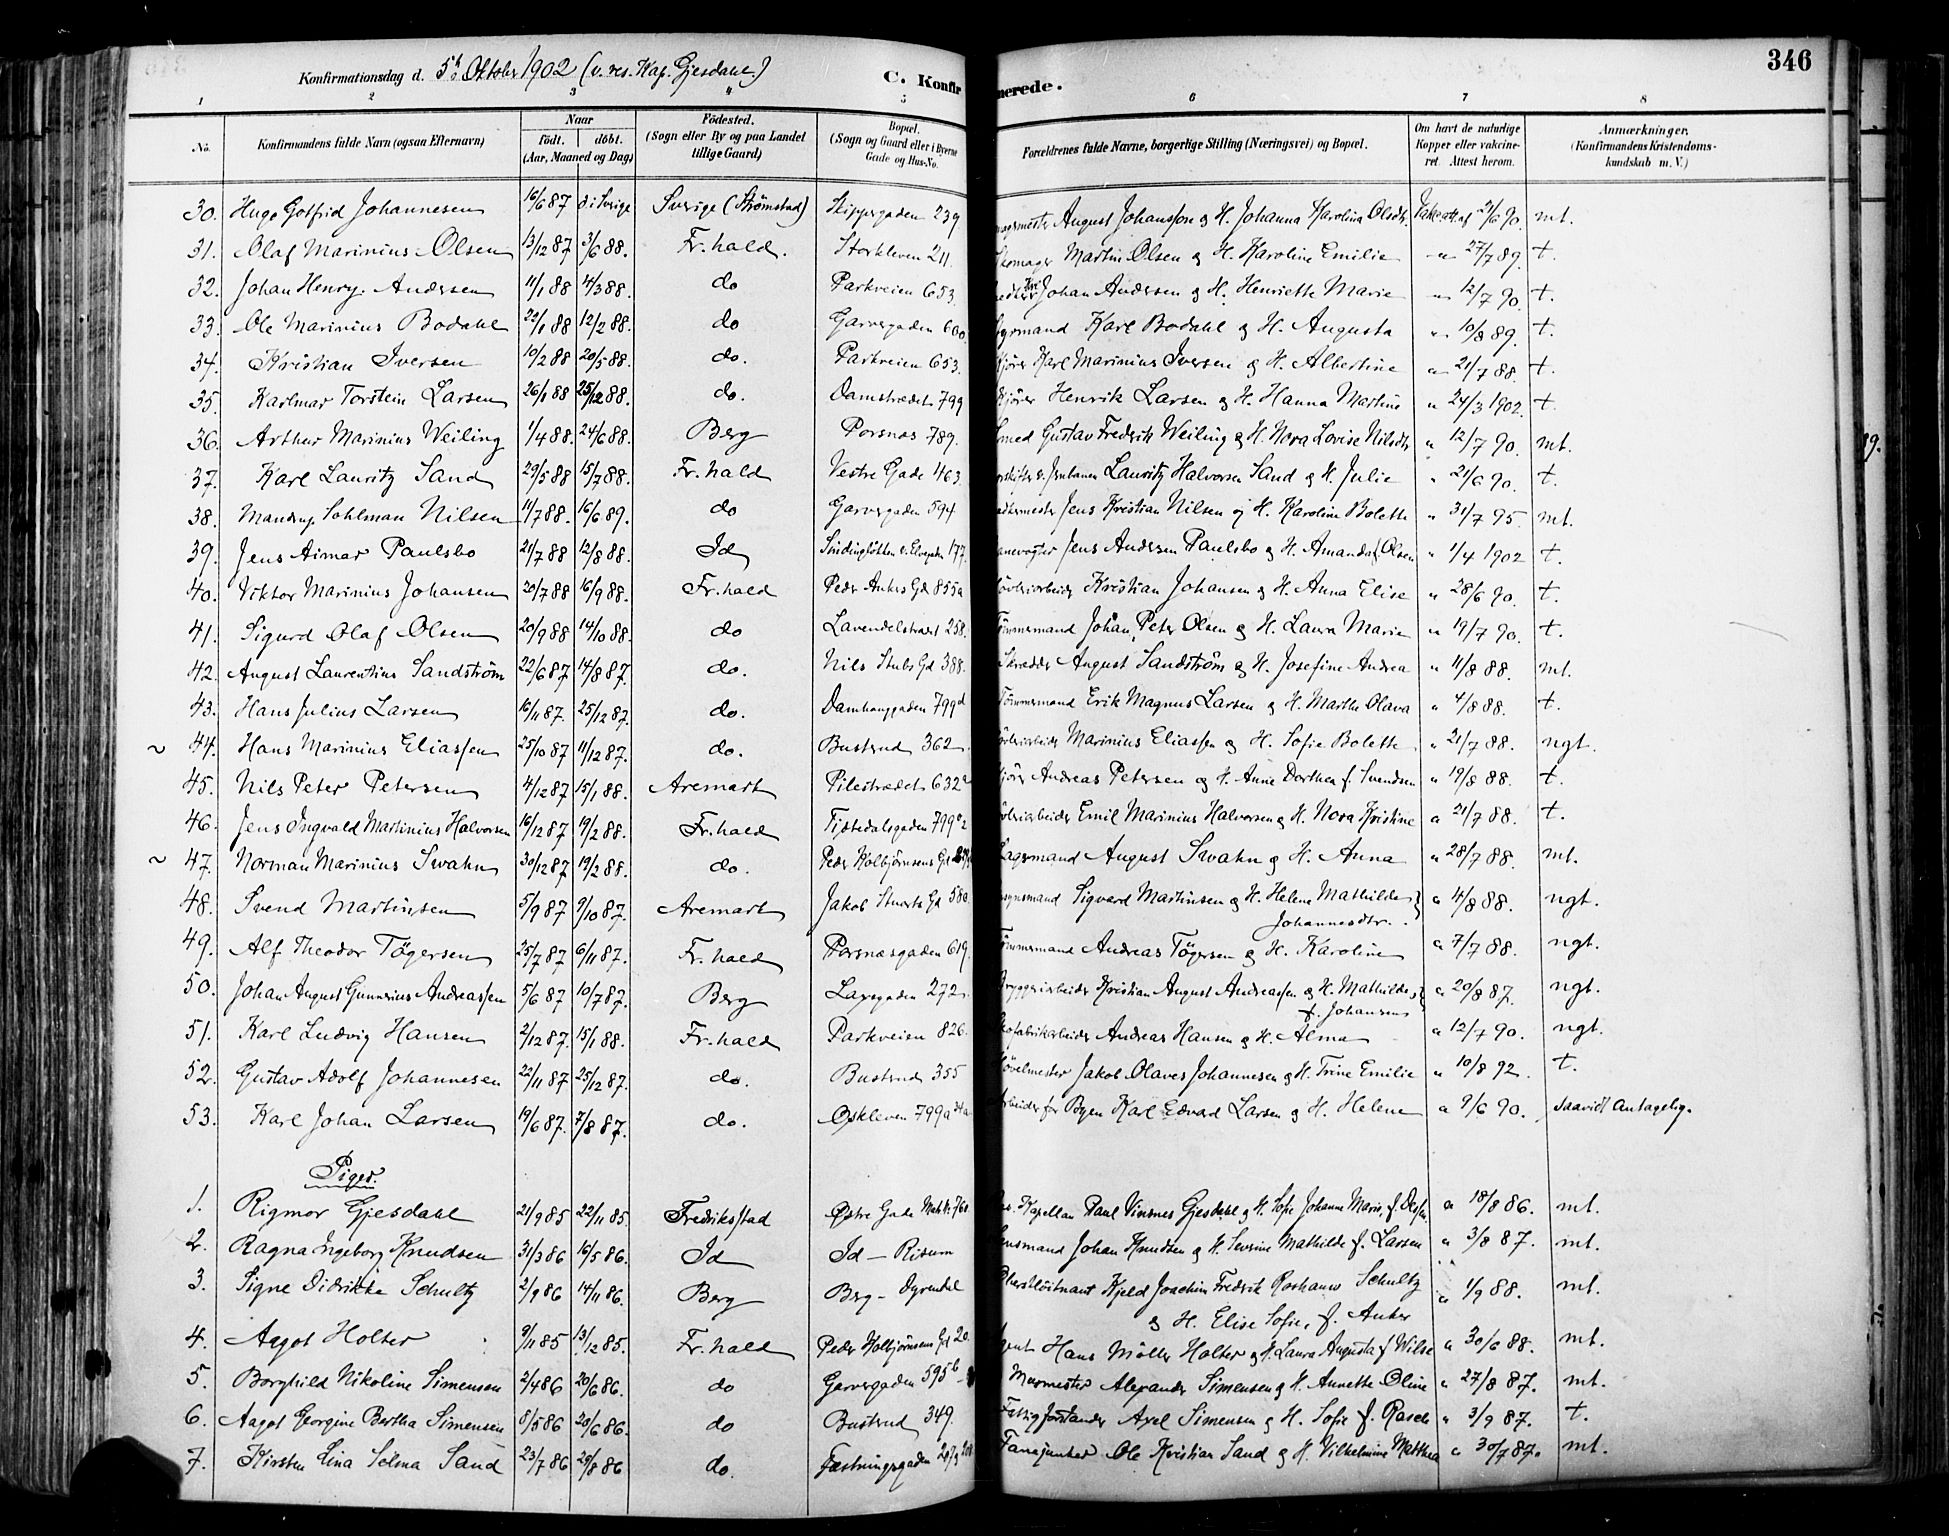 346
Konfirmationsdag d. 5te Oktober 1902 (v. res. Kap. Gjesdahl.) C. Konfirmerede.
1 2 3 4 5 6 7 8
No. Konfirmandens fulde Navn (ogsaa Efternavn) Naar födt. döbt. (Aar, Maaned og Dag) Födested. (Sogn eller By og paa Landet tillige Gaard) Bopæl. (Sogn og Gaard eller i Byerne Gade og Hus-No. Forældrenes fulde Navne, borgerlige Stilling (Næringsvei) og Bopæl. Om havt de naturlige Kopper eller vakcineret. Attest herom. Anmærkninger. (Konfirmandens Kristendomskundskab m. V.)
30. Hugo Gotfrid Johannesen 16/6 87 d. i Sverige Sverige (Strømstad) Skippergaden 239 August Johansson & H. Johanna Karolina Olsdtr. Vakc. att. af 2/6 90. mt.
31. Olaf Marinius Olsen 13/12 87 3/6 88. Fr.hald. Storkleven 211. Skomager Martin Olsen & H. Karoline Emilie " 27/7 89. t.
32. Johan Henry Andersen 11/1 88 14/3 88. do Parkveien 653. Johan Andersen & H. Henriette Marie " 12/7 90. t.
33. Ole Marinius Bodahl 22/1 88 12/2 88. do Garvergaden 600 Styrmand Karl Bodahl & H. Augusta " 10/8 89. t.
34. Kristian Iversen 10/2 88 20/5 88. do. Parkveien 653. Kjører Karl Marinius Iversen & H. Albertine " 21/7 88. t.
35. Karlmar Torstein Larsen 26/1 88 25/12 88. do. Damstrædet 799 Kjører Henrik Larsen & H. Hanna Martine " 24/3 1902. t.
36. Arthur Marinius Weiling 1/4 88. 24/6 88. Berg Porsnæs 789. Smed Gustav Fredrik Weiling & H. Nora Lovise Nilsdtr " 12/7 90. mt.
37. Karl Lauritz Sand 29/5 88 15/7 88. Fr.hald Vestre Gade 463. v. Jernbanen Lauritz Halvorsen Sand & H. Julie " 21/6 90. t.
38. Mandrup Sohlman Nilsen 11/7 88. 16/6 89. do Garvergaden 594 Jens Kristian Nilsen & H. Karoline Bolette " 31/7 95. mt.
39. Jens Aimar Paulsbo 21/7 88 12/8 88. Id 177. Banevogter Jens Andersen Paulsbo & H. Amanda f. Olsen " 1/4 1902 t.
40. Viktor Marinius Johansen 20/7 88 16/9 88. Fr.hald Peder Ankers Gd 855a Høvleriarbeider Kristian Johansen & H. Anna Elise " 28/6 90. t.
41. Sigurd Olaf Olsen 20/9 88 14/10 88. do Lavendelstrædet 258. Tømmermand Johan Peter Olsen & H. Laura Marie " 19/7 90. t.
42. August Laurentius Sandström 22/6 87 14/8 87. do. Nils Stubs Gd 388. Skrædder August Sandström & H. Josefine Andrea " 11/8 88. mt.
43. Hans Julius Larsen 16/11 87. 25/12 87. do. Damhauggaden 799d Tømmermand Erik Magnus Larsen & H. Marthe Olava " 4/8 88. t.
~ 44. Hans Marinius Eliassen 25/10 87 11/12 87. do. Busterud 362. Høvleriarbeider Marinius Eliassen & H. Sofie Bolette " 21/7 88. ngt.
45. Nils Peter Petersen 4/12 87 15/1 88. Aremark Pilestrædet 632a Kjører Andreas Petersen & H. Anne Dorthea f. Svendsen " 19/8 88. t.
46. Jens Ingvald Martinius Halvorsen 16/12 87 19/2 88. Fr.hald Tistedalsgaden 799e2 Høvleriarbeider Emil Marinius Halvorsen & H. Nora Kristine " 21/7 88. t.
~ 47. Norman Marinius Swahn 30/12 87 19/2 88. do. Peder Kolbjørnsens Gd Lagermand August Swahn & H. Anna " 28/7 88. mt.
48. Svend Martinsen 5/9 87 9/10 87. Aremark Jakob Stuarts Gd 580. Sigvard Martinsen & H. Helene Mathilde Johannesdtr. " 11/8 88. ngt.
49. Alf Theodor Tögersen 25/7 87 6/11 87. Fr.hald Porsnæsgaden 619. Tømmermand Andreas Tögersen & H. Karoline " 7/7 88. ngt.
50. Johan August Gunnerius Andreassen 5/6 87 10/7 87. Berg Laxegaden 272. Bryggeriarbeider Kristian August Andreassen & H. Mathilde, f. Johansen " 20/8 87. ngt.
51. Karl Ludvig Hansen 2/12 87. 15/1 88. Fr.hald Parkveien 826. Skofabrikarbeider Andreas Hansen & H. Alma " 12/7 90. ngt.
52. Gustav Adolf Johannesen 22/11 87 25/12 87. do. Busterud 355 Høvelmester Jakob Olaves Johannesen & H. Trine Emilie " 10/8 92. t.
53. Karl Johan Larsen 19/6 87. 7/8 87. do. Øskleven 799a Arbeider for Byen Karl Edvard Larsen & H. Helene " 9/6 90. Saavidt Antagelig.
Piger.
1. Rigmor Gjesdahl 21/9 85 22/11 85. Fredriksstad Østre Gade Matr. No 760 res. Kapellan Paul Vinsnes Gjesdahl & H. Sofie Johanne Marie, f. " 18/8 86. mt.
2. Ragna Ingeborg Knudsen 31/3 86 16/5 86. Id Id - Risum Lensmand Johan Knudsen & H. Severine Mathilde f. Larsen " 3/8 87. mt.
3. Signe Didrikke Schultz 2/9 86 14/11 86. Berg Berg - Dyrendal Oberstløitnant Kjeld Joachim Fredrik Roshauw Schultz & H. Elise Sofie, f. Anker " 1/9 88. mt.
4. Aagot Holter 9/11 85 13/12 85. Fr.hald Peder Kolbjørnsens Gd 20. Agent Hans Möller Holter & H. Laura Augusta f. Wilse " 30/6 88. mt.
5. Borghild Nikoline Simensen 2/4 86 20/6 86. do Garvergaden 595b Murmester Alexander Simensen & H. Annette Oline " 27/8 87. mt.
6. Aagot Georgine Bertha Simensen 8/5 86 20/6 86. do Busterud 349. Fattigforstander Axel Simensen & H. Sofie f. Rasch " 3/9 87. t.
7. Kirsten Lina Selma Sand 23/7 86 29/8 86 do. Fæstningsgaden Fanejunker Ole Kristian Sand & H. Vilhelmine Matthea " 30/7 87. mt.